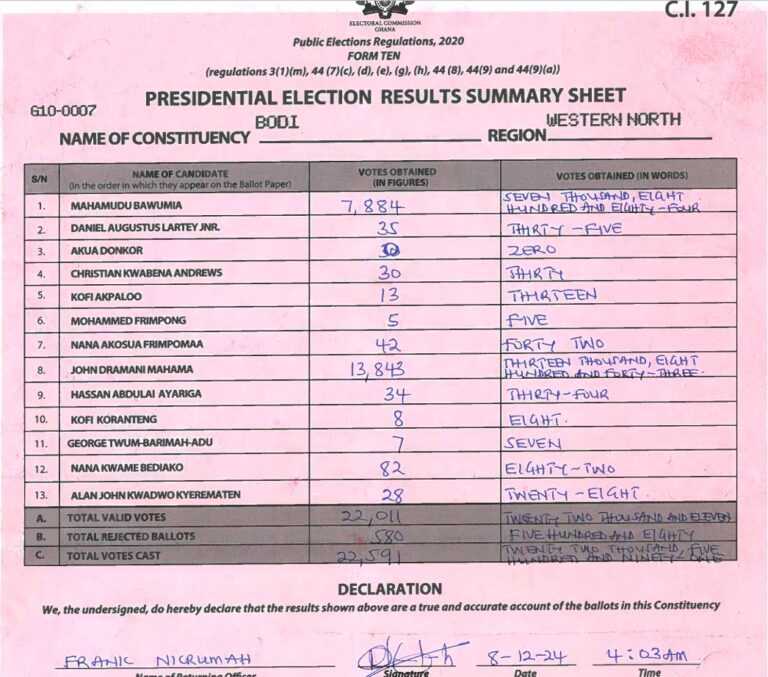 C.I. 127
ELECTORAL COMMISSION
GHANA
Public Elections Regulations, 2020
FORM TEN
(regulations 3(1)(m), 44 (7)(c), (d), (e), (g), (h), 44 (8), 44(9) and 44(9)(a))
PRESIDENTIAL ELECTION RESULTS SUMMARY SHEET
G10-0007
NAME OF CONSTITUENCY BODI REGION WESTERN NORTH
S/N NAME OF CANDIDATE (In the order in which they appear on the Ballot Paper) VOTES OBTAINED (IN FIGURES) VOTES OBTAINED (IN WORDS)
1. MAHAMUDU BAWUMIA 7,884 SEVEN THOUSAND, EIGHT HUNDRED AND EIGHTY-FOUR
2. DANIEL AUGUSTUS LARTEY JNR. 35 THIRTY-FIVE
3. AKUA DONKOR ZERO
4. CHRISTIAN KWABENA ANDREWS 30 THIRTY
5. KOFI AKPALOO 13 THIRTEEN
6. MOHAMMED FRIMPONG 5 FIVE
7. NANA AKOSUA FRIMPOMAA 42 FORTY TWO
8. JOHN DRAMANI MAHAMA 13,843 THIRTEEN THOUSAND, EIGHT HUNDRED AND FORTY-THREE.
9. HASSAN ABDULAI AYARIGA 34 THIRTY-FOUR
10. KOFI KORANTENG 8 EIGHT.
11. GEORGE TWUM-BARIMAH-ADU 7 SEVEN
12. NANA KWAME BEDIAKO 82 EIGHTY-TWO
13. ALAN JOHN KWADWO KYEREMATEN 28 TWENTY-EIGHT.
A. TOTAL VALID VOTES 22,011 TWENTY TWO THOUSAND AND ELEVEN
B. TOTAL REJECTED BALLOTS 580 FIVE HUNDRED AND EIGHTY
C. TOTAL VOTES CAST 22,591 TWENTY TWO THOUSAND, FIVE HUNDRED AND NINETY-ONE
DECLARATION
We, the undersigned, do hereby declare that the results shown above are a true and accurate account of the ballots in this Constituency
8-12-24 4:03AM
Name of Returning Officer Signature Date Time